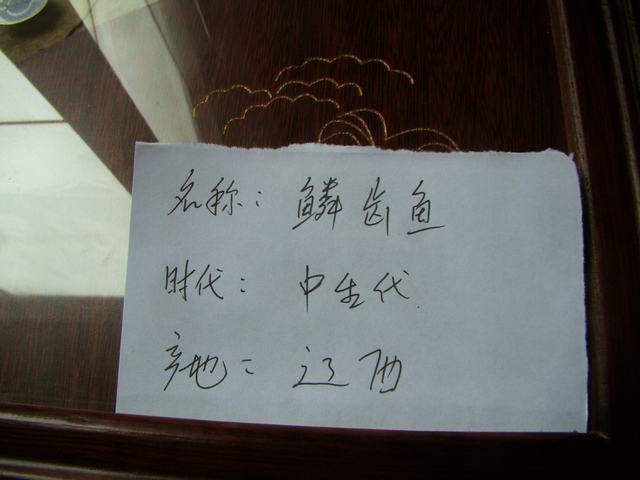 名称：鳞齿鱼
时代：中生代
产地：辽西